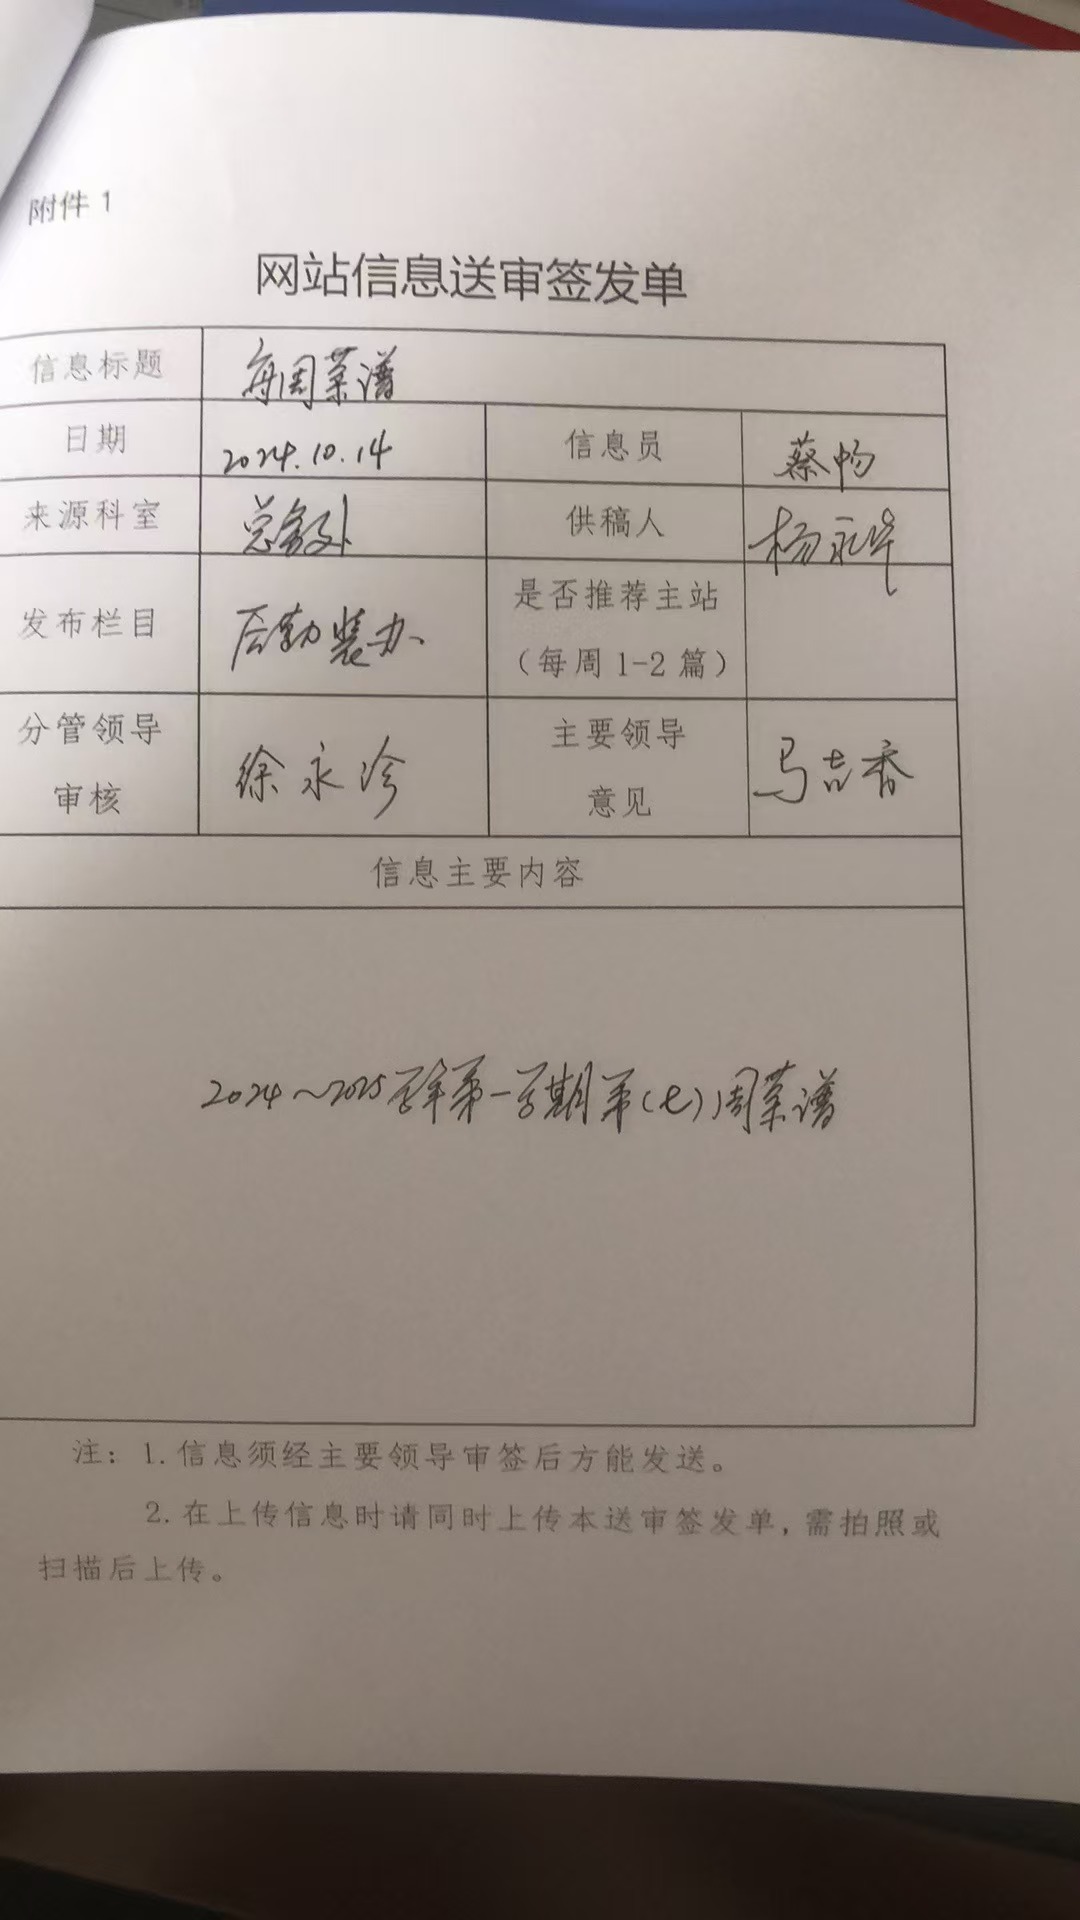 附件 1
网站信息送审签发单
信息标题 每周菜谱
日期 2024.10.14 信息员 蔡畅
来源科室 总务处 供稿人 杨永华
发布栏目 后勤装办 是否推荐主站
（每周 1-2 篇）
分管领导 徐永珍 主要领导 马吉香
审核 意见
信息主要内容
2024～2025学年第一学期第(七)周菜谱
注：1. 信息须经主要领导审签后方能发送。
2. 在上传信息时请同时上传本送审签发单，需拍照或
扫描后上传。